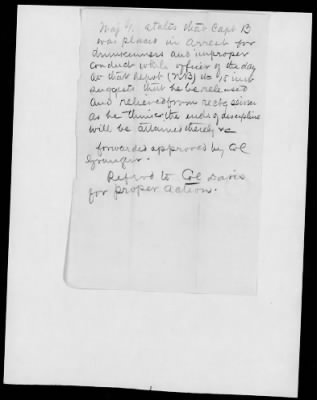 Maj G. states that Capt B
was placed in arrest for
drunkenness and improper
conduct while officer of the day
at that Depot 15 inst
suggests that he be released
and relieved from rectg service
as he thinks the ends of discipline
will be attained thereby &c
forwarded approved by Col
Granger.
Referd to Col Davis
for proper action.